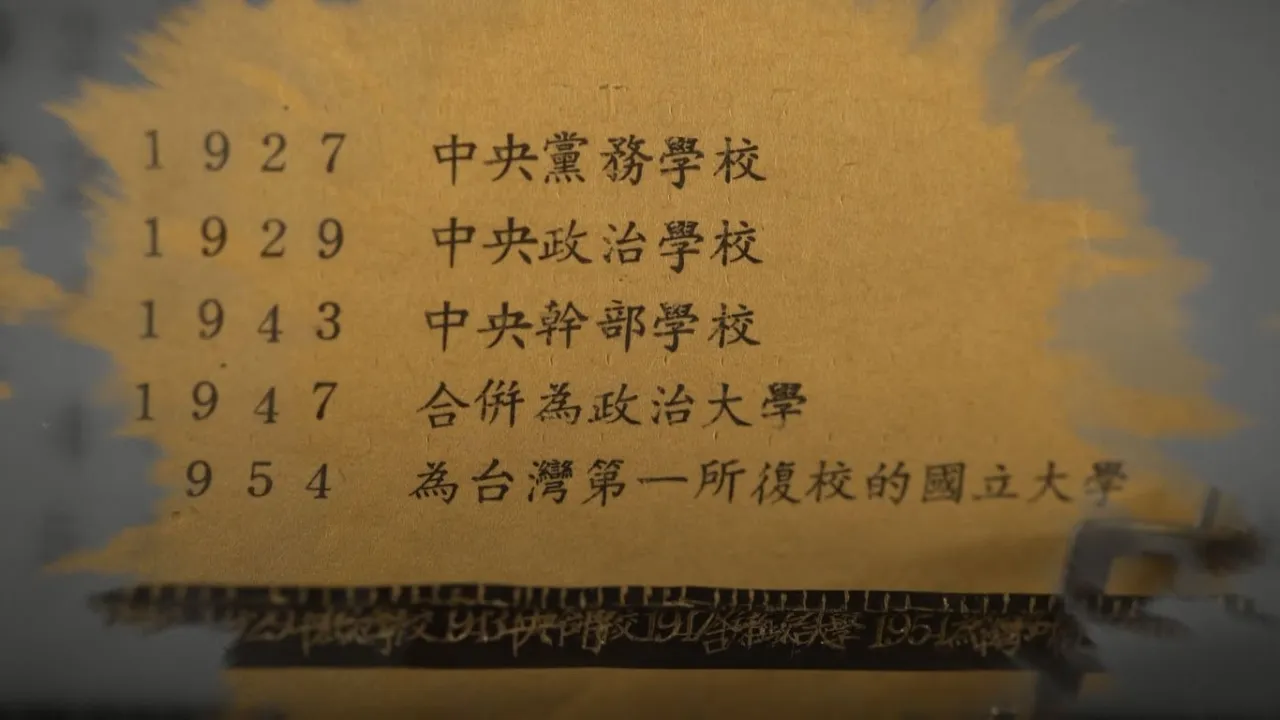 1927 中央黨務學校
1929 中央政治學校
1943 中央幹部學校
1947 合併為政治大學
954 為台灣第一所復校的國立大學